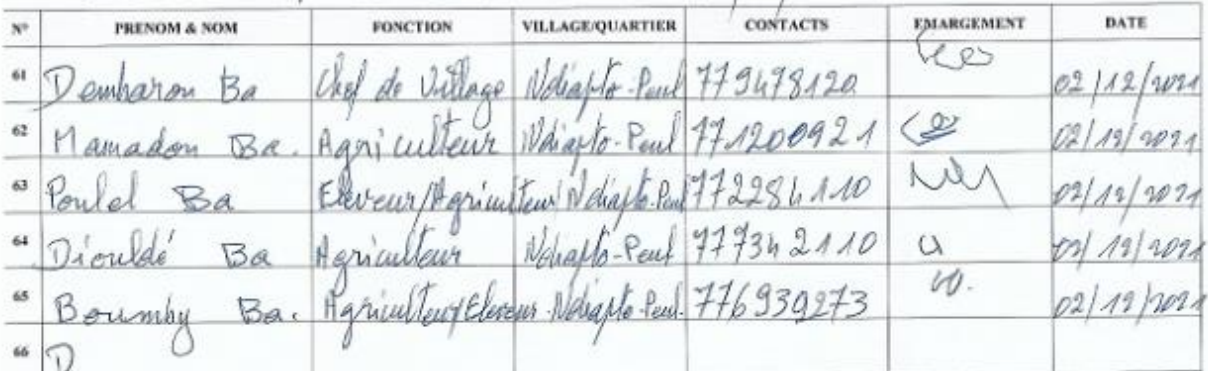 N° PRENOM & NOM FONCTION VILLAGE/QUARTIER CONTACTS EMARGEMENT DATE
61 Dembarou Ba Chef de Village Ndiapto-Peul 779478120 02/12/2021
62 Mamadou Ba. Agriculteur Ndiapto-Peul 771200921 02/12/2021
63 Poulel Ba Eleveur/Agriculteur Ndiapto-Peul 772284110 02/12/2021
64 Diouldé Ba Agriculteur Ndiapto-Peul 777342110 02/12/2021
65 Boumby Ba. Agriculteur/Eleveur Ndiapto-Peul. 776939273 02/12/2021
66 D